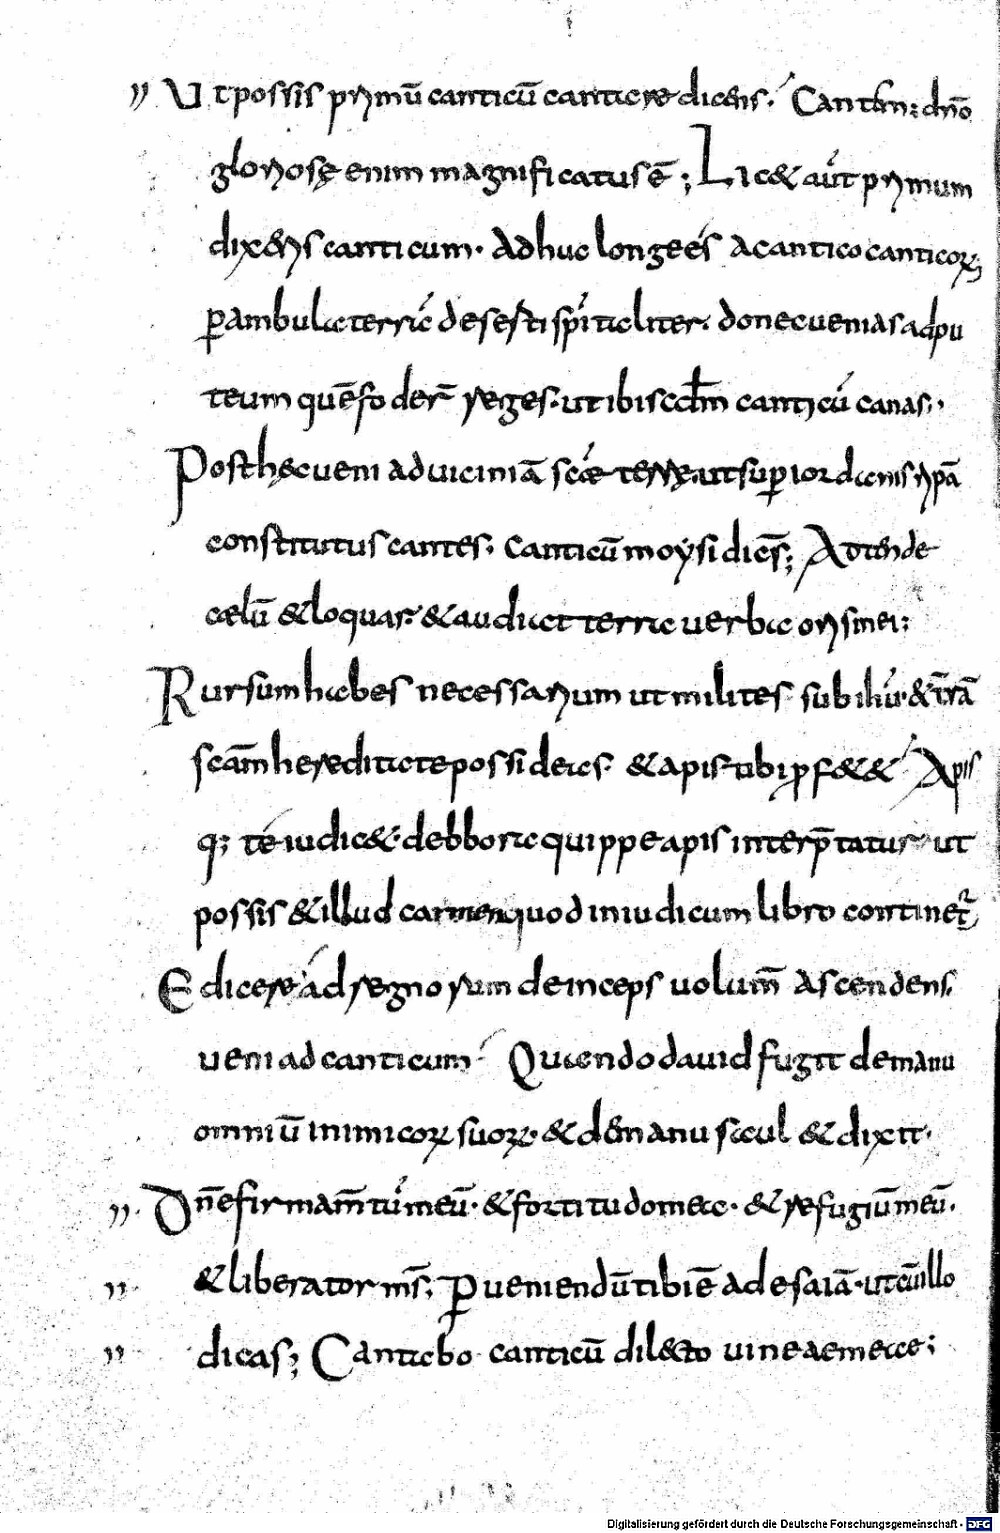 Ut possis primū canticū cantare dicens. Cantem; dn̄o
gloriosę enim magnificatus ē; Lic& aūt primum
dixeris canticum. Adhuc longe es a cantico canticoꝝ
ꝑambula terrā deserti spī taliter. donec uenias ad pu
teum quē foder̄ reges. ut ibi scd̄m canticū canas.
Post hęc ueni ad uiciniā scāe terrę. ut suꝑ iordanis ripā
constitutus cantes. canticū moysi dicēs; Adtende
cælū & loquar. & audiat terra uerba oris mei;
Rursum habes necessarium ut milites sub ihū. & tr̄rā
scām hereditate possideas. & apis tibi ꝓf&&. Apis
q; te iudic&. debbora quippe apis interp̄tatur ut
possis & illud carmen quod in iudicum libro continet᷑
Edicere ad regnorum deinceps uolum̄ ascendens.
ueni ad canticum. Quando dauid fugit de manu
omniū inimicoꝝ suoꝝ. & de manu saul & dixit.
Dn̄e firmam̄tū meū. & fortitudo mea. & refugiū meū.
& liberator ms̄; Ꝑueniendū tibi ē ad esaiā. ut cū illo
dicas; Cantabo canticū dil&to uineae meae;
Digitalisierung gefördert durch die Deutsche Forschungsgemeinschaft - DFG